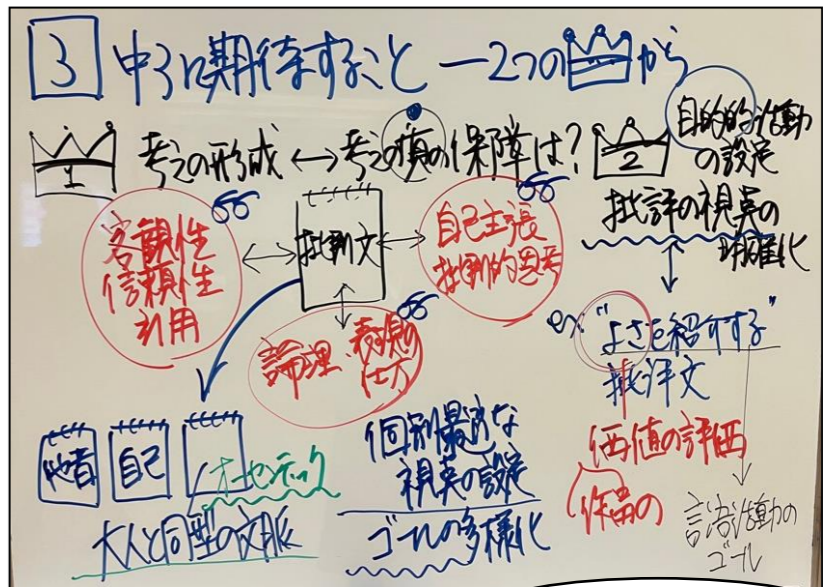 3 中3に期待すること ー2つの から
1 考えの形成 ↔ 考えの の保障は?
2 目的的な活動
の設定
批評の視点の
明確化
客観性
信頼性
引用
批評文
自己主張
批判的思考
論理・表現の
仕方
ex "よさを紹介する"
批評文
価値の評価
作品の
言語活動の
ゴール
他者 自己
オーセンティック
大人と同型の文脈
個別最適な
視点の設定
ゴールの多様化